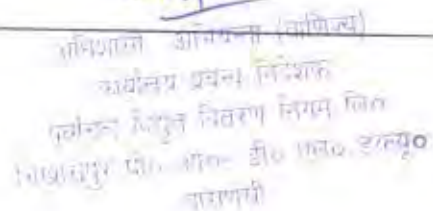 अधिशासी अभियन्ता (वाणिज्य)
कार्यालय प्रबन्ध निदेशक
पूर्वांचल विद्युत वितरण निगम लि०
भिखारीपुर पो० ऑ०- डी० एल० डब्ल्यू०
वाराणसी